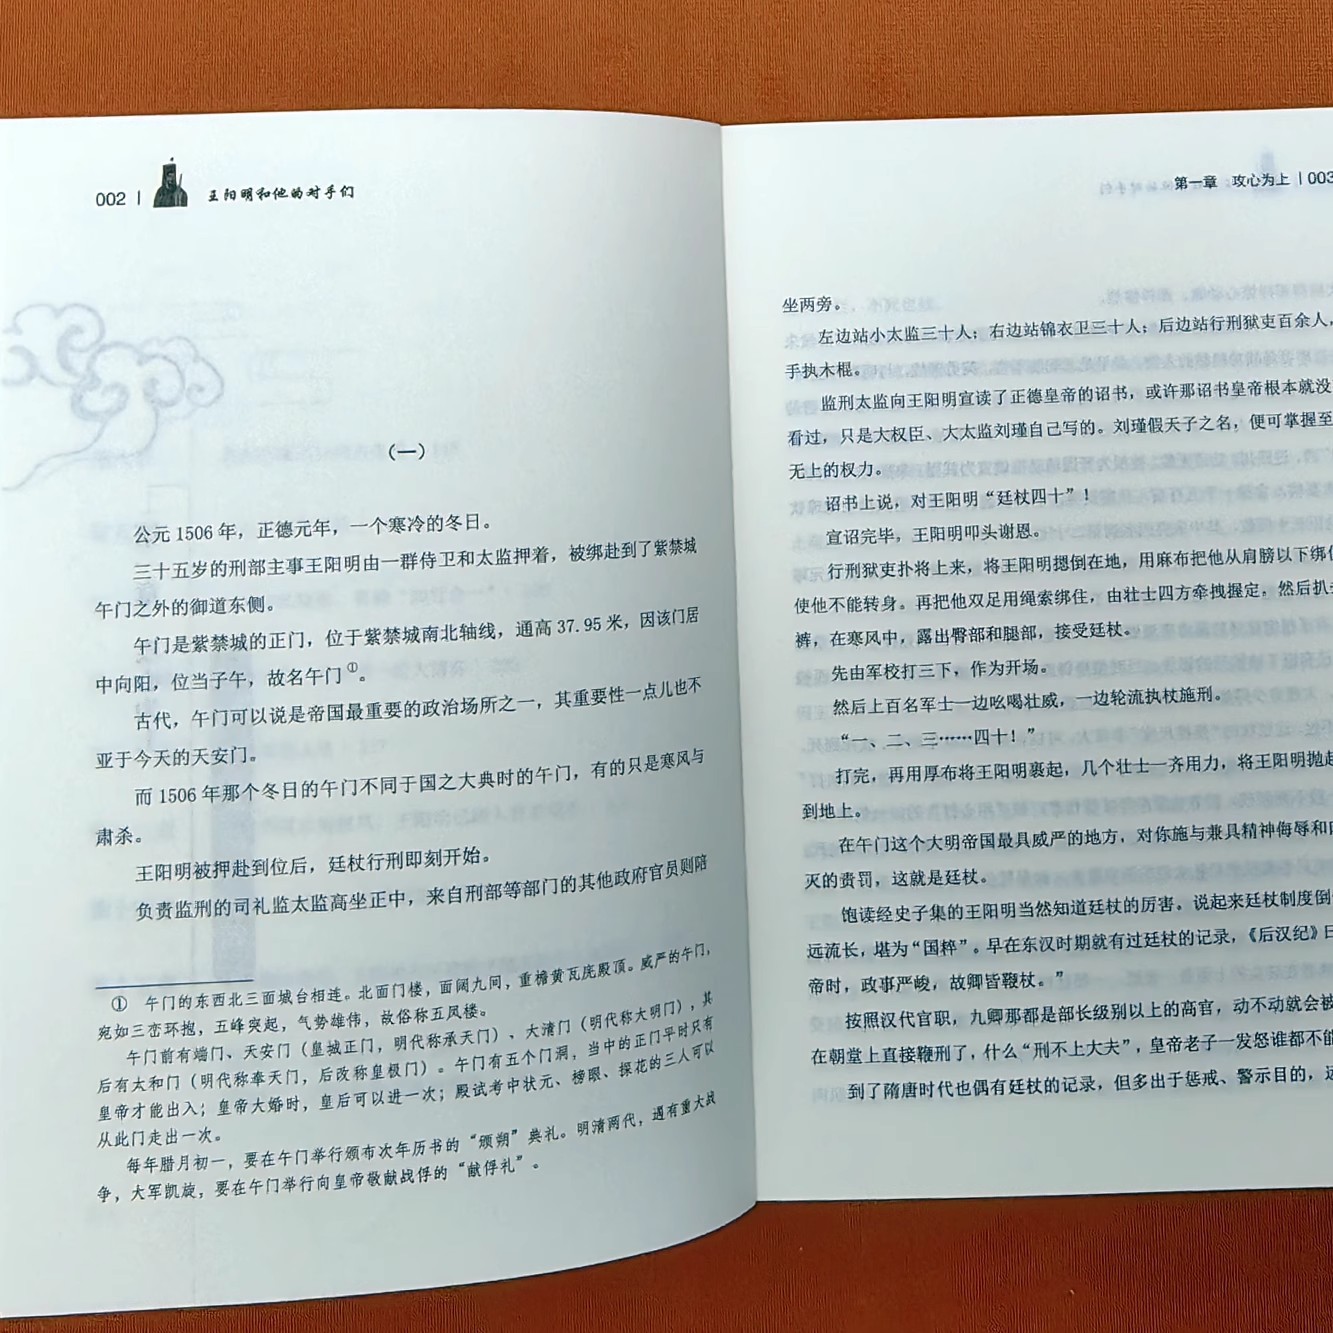 002 | 王阳明和他的对手们
（一）
公元 1506 年，正德元年，一个寒冷的冬日。
三十五岁的刑部主事王阳明由一群侍卫和太监押着，被绑赴到了紫禁城
午门之外的御道东侧。
午门是紫禁城的正门，位于紫禁城南北轴线，通高 37.95 米，因该门居
中向阳，位当子午，故名午门①。
古代，午门可以说是帝国最重要的政治场所之一，其重要性一点儿也不
亚于今天的天安门。
而 1506 年那个冬日的午门不同于国之大典时的午门，有的只是寒风与
肃杀。
王阳明被押赴到位后，廷杖行刑即刻开始。
负责监刑的司礼监太监高坐正中，来自刑部等部门的其他政府官员则陪
① 午门的东西北三面城台相连。北面门楼，面阔九间，重檐黄瓦庑殿顶。威严的午门，
宛如三峦环抱，五峰突起，气势雄伟，故俗称五凤楼。
午门前有端门、天安门（皇城正门，明代称承天门）、大清门（明代称大明门），其
后有太和门（明代称奉天门，后改称皇极门）。午门有五个门洞，当中的正门平时只有
皇帝才能出入；皇帝大婚时，皇后可以进一次；殿试考中状元、榜眼、探花的三人可以
从此门走出一次。
每年腊月初一，要在午门举行颁布次年历书的“颁朔”典礼。明清两代，遇有重大战
争，大军凯旋，要在午门举行向皇帝敬献战俘的“献俘礼”。
第一章 攻心为上 | 003
坐两旁。
左边站小太监三十人；右边站锦衣卫三十人；后边站行刑狱吏百余人，
手执木棍。
监刑太监向王阳明宣读了正德皇帝的诏书，或许那诏书皇帝根本就没
看过，只是大权臣、大太监刘瑾自己写的。刘瑾假天子之名，便可掌握至
无上的权力。
诏书上说，对王阳明“廷杖四十”！
宣诏完毕，王阳明叩头谢恩。
行刑狱吏扑将上来，将王阳明摁倒在地，用麻布把他从肩膀以下绑
使他不能转身。再把他双足用绳索绑住，由壮士四方牵拽握定，然后扒
裤，在寒风中，露出臀部和腿部，接受廷杖。
先由军校打三下，作为开场。
然后上百名军士一边吆喝壮威，一边轮流执杖施刑。
“一、二、三……四十！”
打完，再用厚布将王阳明裹起，几个壮士一齐用力，将王阳明抛起
到地上。
在午门这个大明帝国最具威严的地方，对你施与兼具精神侮辱和
灭的责罚，这就是廷杖。
饱读经史子集的王阳明当然知道廷杖的厉害。说起来廷杖制度倒
远流长，堪为“国粹”。早在东汉时期就有过廷杖的记录，《后汉纪》
帝时，政事严峻，故卿皆鞭杖。”
按照汉代官职，九卿那都是部长级别以上的高官，动不动就会被
在朝堂上直接鞭刑了，什么“刑不上大夫”，皇帝老子一发怒谁都不能
到了隋唐时代也偶有廷杖的记录，但多出于惩戒、警示目的，